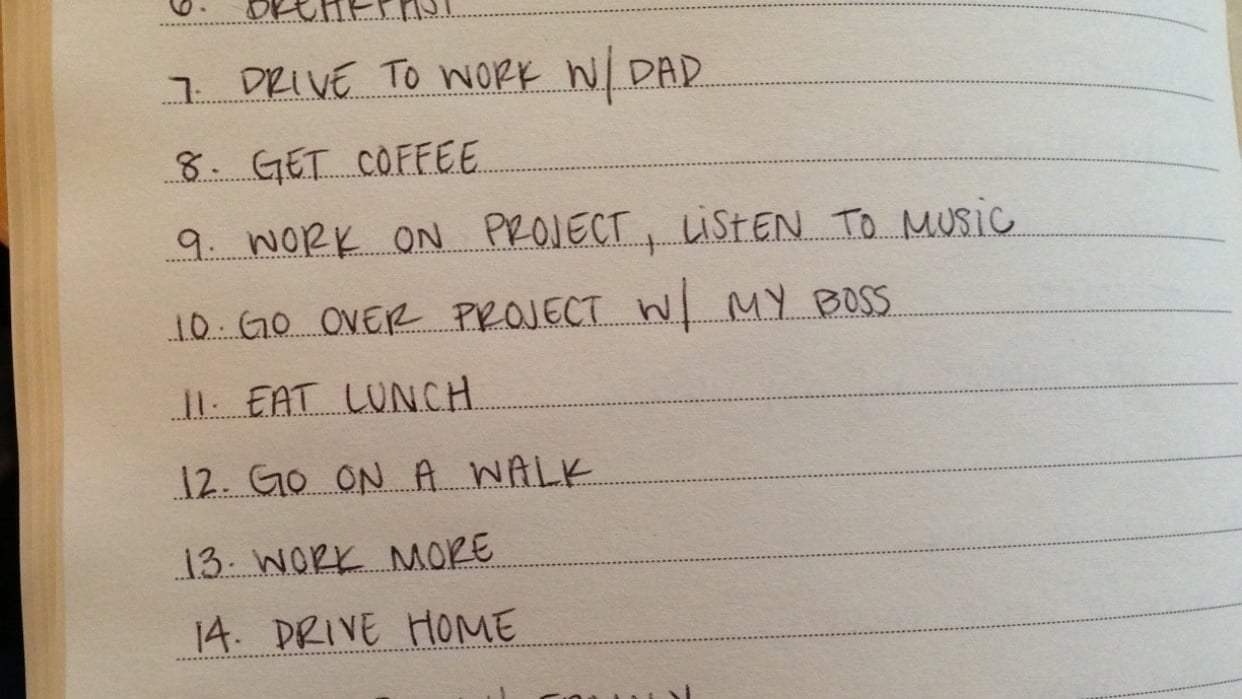 6. BREAKFAST
7. DRIVE TO WORK W/ DAD
8. GET COFFEE
9. WORK ON PROJECT, LiStEN TO MUSiC
10. GO OVER PROJECT W/ MY BOSS
11. EAT LUNCH
12. GO ON A WALK
13. WORK MORE
14. DRIVE HOME